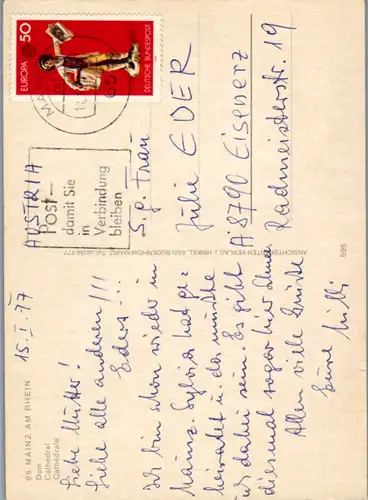 65 MAINZ AM RHEIN
Dom
Cathedral
Cathédrale
15. I. 77
Liebe Mutter!
Liebe alle anderen!!!
Eders...
Ich bin schon wieder in
Mainz. Sylvia hat ge-
heiratet u. da mußte
ich dabei sein. Es gibt
diesmal sogar hier Schnee.
Allen viele Grüße
Eure Milli
ANSICHTSKARTEN VERLAG J. HINKEL 6501 BUDENHEIM/MAINZ
595
EUROPA
50
DEUTSCHE BUNDESPOST
65
Post-
damit Sie
in
Verbindung
bleiben
AUSTRIA
S. g. Frau
Julie EDER
A 8790 Eisenerz
Radmeisterstr. 19